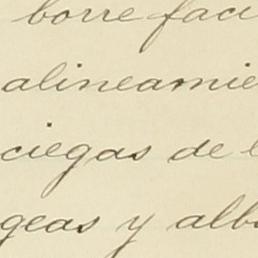 borre faci
alineamie
ciegas de l
geas y alb